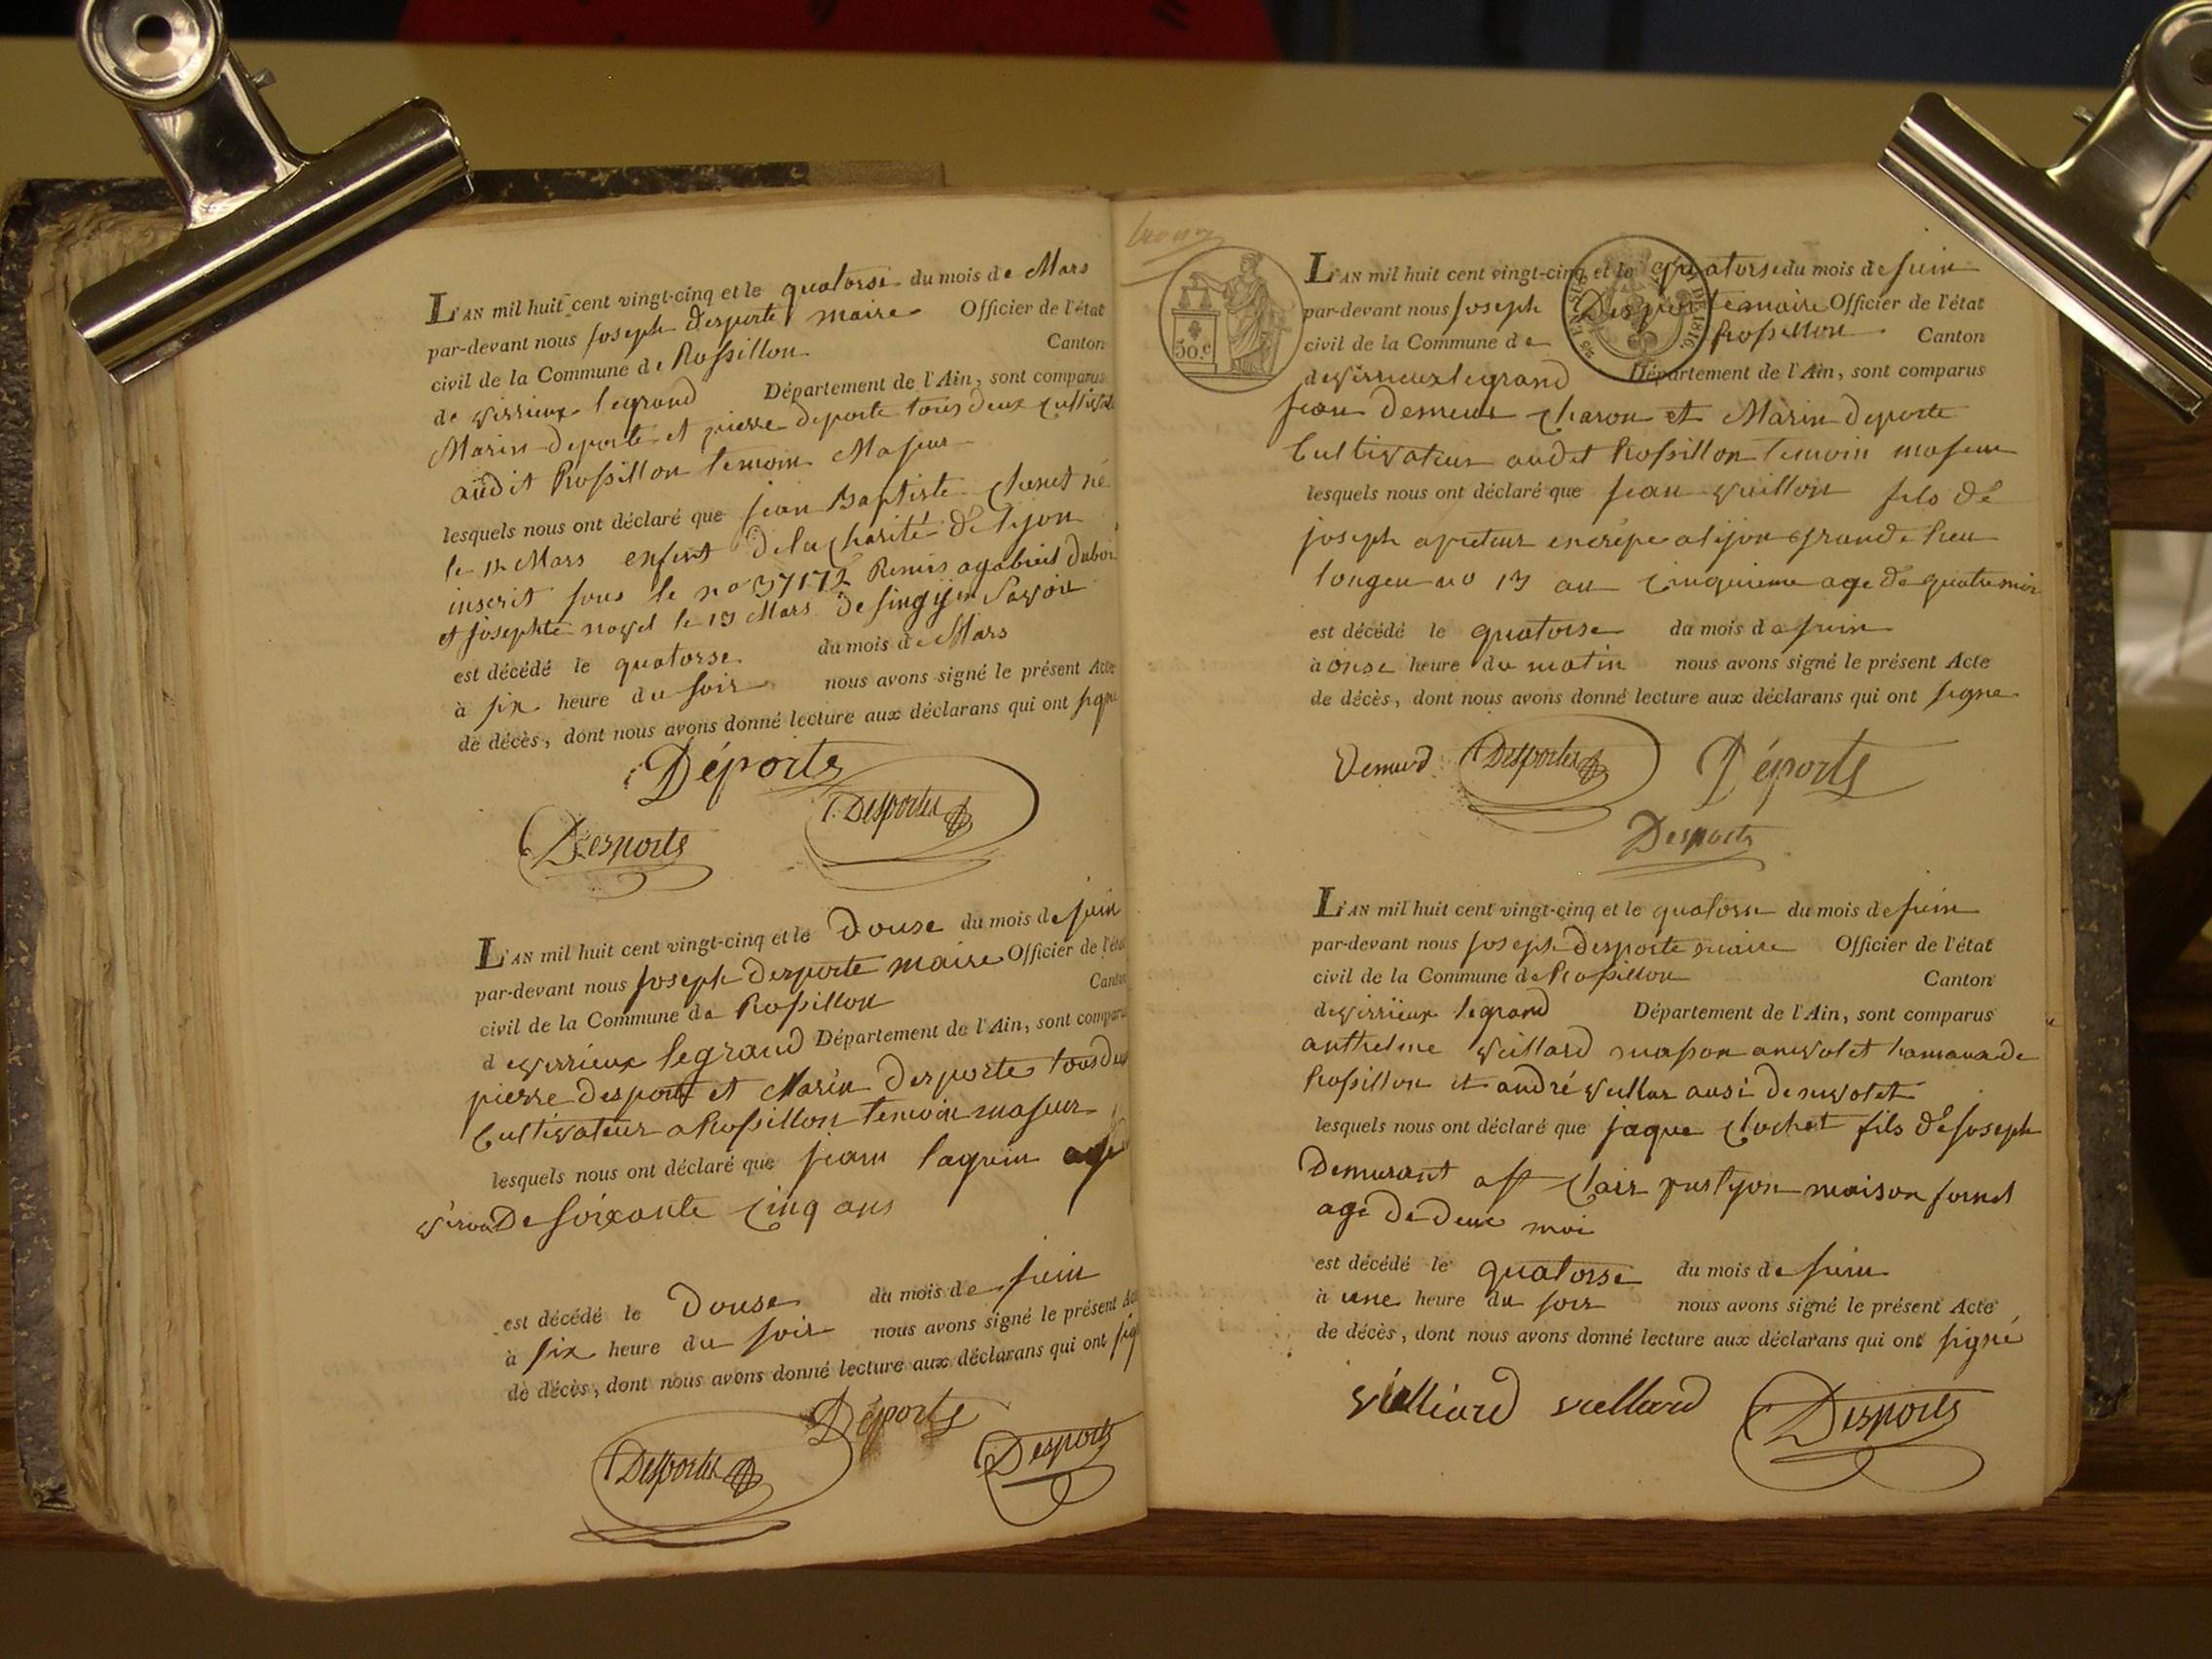 L'AN mil huit cent vingt-cinq et le quatorse du mois de Mars
par-devant nous joseph desporte maire Officier de l'état
civil de la Commune de Rossillon Canton
de virrieux legrand Département de l'Ain, sont comparus
Marin deporte et pierre deporte tous deux
audit Rossillon temoin Majeur
lesquels nous ont déclaré que jean Baptiste né
le 12 Mars enfent de la charité de lyon
inscrit sous le no 37172 Remis a gabriel duboi
et josephte noyel le 13 Mars de Savoie
est décédé le quatorse du mois de Mars
à six heure du soir nous avons signé le présent Acte
de décès, dont nous avons donné lecture aux déclarans qui ont signe
Déporte
Desportes
Desporte
L'AN mil huit cent vingt-cinq et le Douse du mois de juin
par-devant nous joseph Desporte maire Officier de l'état
civil de la Commune de Rossillon Canton
de virrieux legrand Département de l'Ain, sont comparus
pierre desporte et Marin Desporte tous deux
Cultivateur a Rossillon temoin majeur
lesquels nous ont déclaré que jean laguin agé
De soixante cinq ans
est décédé le Douse du mois de juin
à six heure du soir nous avons signé le présent Acte
de décès, dont nous avons donné lecture aux déclarans qui ont
Déporte
Desportes
Desporte
50.c
DE 1816
L'AN mil huit cent vingt-cinq et le quatorse du mois de juin
par-devant nous joseph Desporte maire Officier de l'état
civil de la Commune de Rossillon Canton
de virrieux legrand Département de l'Ain, sont comparus
jean demeur charon et Marin deporte
Cultivateur audit Rossillon temoin majeur
lesquels nous ont déclaré que jean vuillon fils de
joseph en crépe a lyon grande
no 13 au cinquieme age de quatre moi
est décédé le quatorse du mois de juin
à onse heure du matin nous avons signé le présent Acte
de décès, dont nous avons donné lecture aux déclarans qui ont signe
Demurd
Desportes
Déporte
Desporte
L'AN mil huit cent vingt-cinq et le quatorse du mois de juin
par-devant nous joseph desporte maire Officier de l'état
civil de la Commune de Rossillon Canton
de virrieux legrand Département de l'Ain, sont comparus
anthelme vuillard masson
Rossillon et andré ausi
lesquels nous ont déclaré que jaque clochet fils de joseph
Demurant a st clair lyon maison
age de deux moi
est décédé le quatorse du mois de juin
à une heure du soir nous avons signé le présent Acte
de décès, dont nous avons donné lecture aux déclarans qui ont signé
vulliard vuillard
Desporte